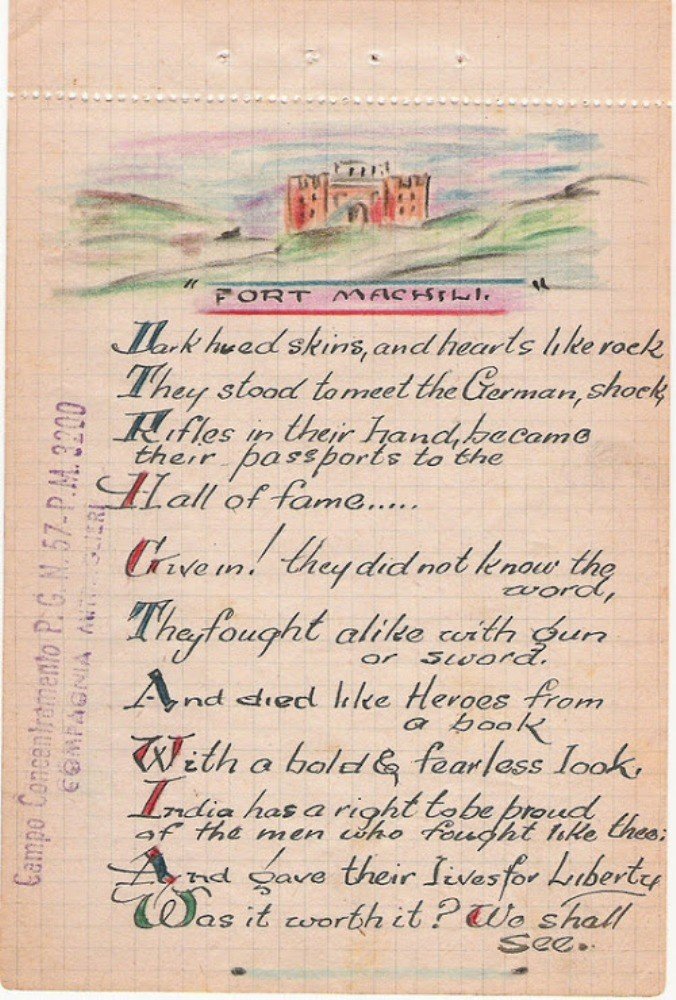 " FORT MACHILI. "
Dark hued skins, and hearts like rock
They stood to meet the German, shock,
Rifles in their hand, became
their passports to the
Hall of fame.....
Give in! they did not know the
word,
They fought alike with gun
or sword.
And died like Heroes from
a book
With a bold & fearless look,
India has a right to be proud
of the men who fought like thee:
And gave their lives for Liberty
Was it worth it? We shall
see..
Campo Concentramento P.G.N. 57-P.M. 3200
COMPAGNIA